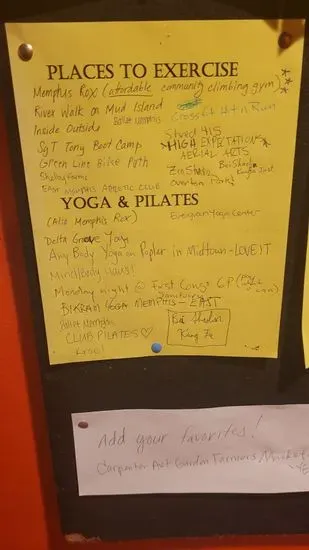 PLACES TO EXERCISE
Memphis Rox (affordable community climbing gym)
River Walk on Mud Island
Ballet Memphis
CrossFit Hit n Run
Inside Outside
Shred 415
Sgt Tony Boot Camp
*HIGH EXPECTATIONS*
AERIAL ARTS
Green Line Bike Path
Shelby Farms
Overton Park
EAST MEMPHIS ATHLETIC CLUB
YOGA & PILATES
(Also Memphis Rox)
Evergreen Yoga Center
Delta Groove Yoga
Any Body Yoga on Poplar in Midtown - LOVE IT
Mindbody Haus!
Monday night @ First Congo 6P
BIKRAM YOGA MEMPHIS - EAST
Ballet Memphis
CLUB PILATES ♡
Bei Shaolin
Kung Fu
Add your favorites!
Carpenter Art Garden Farmers Market